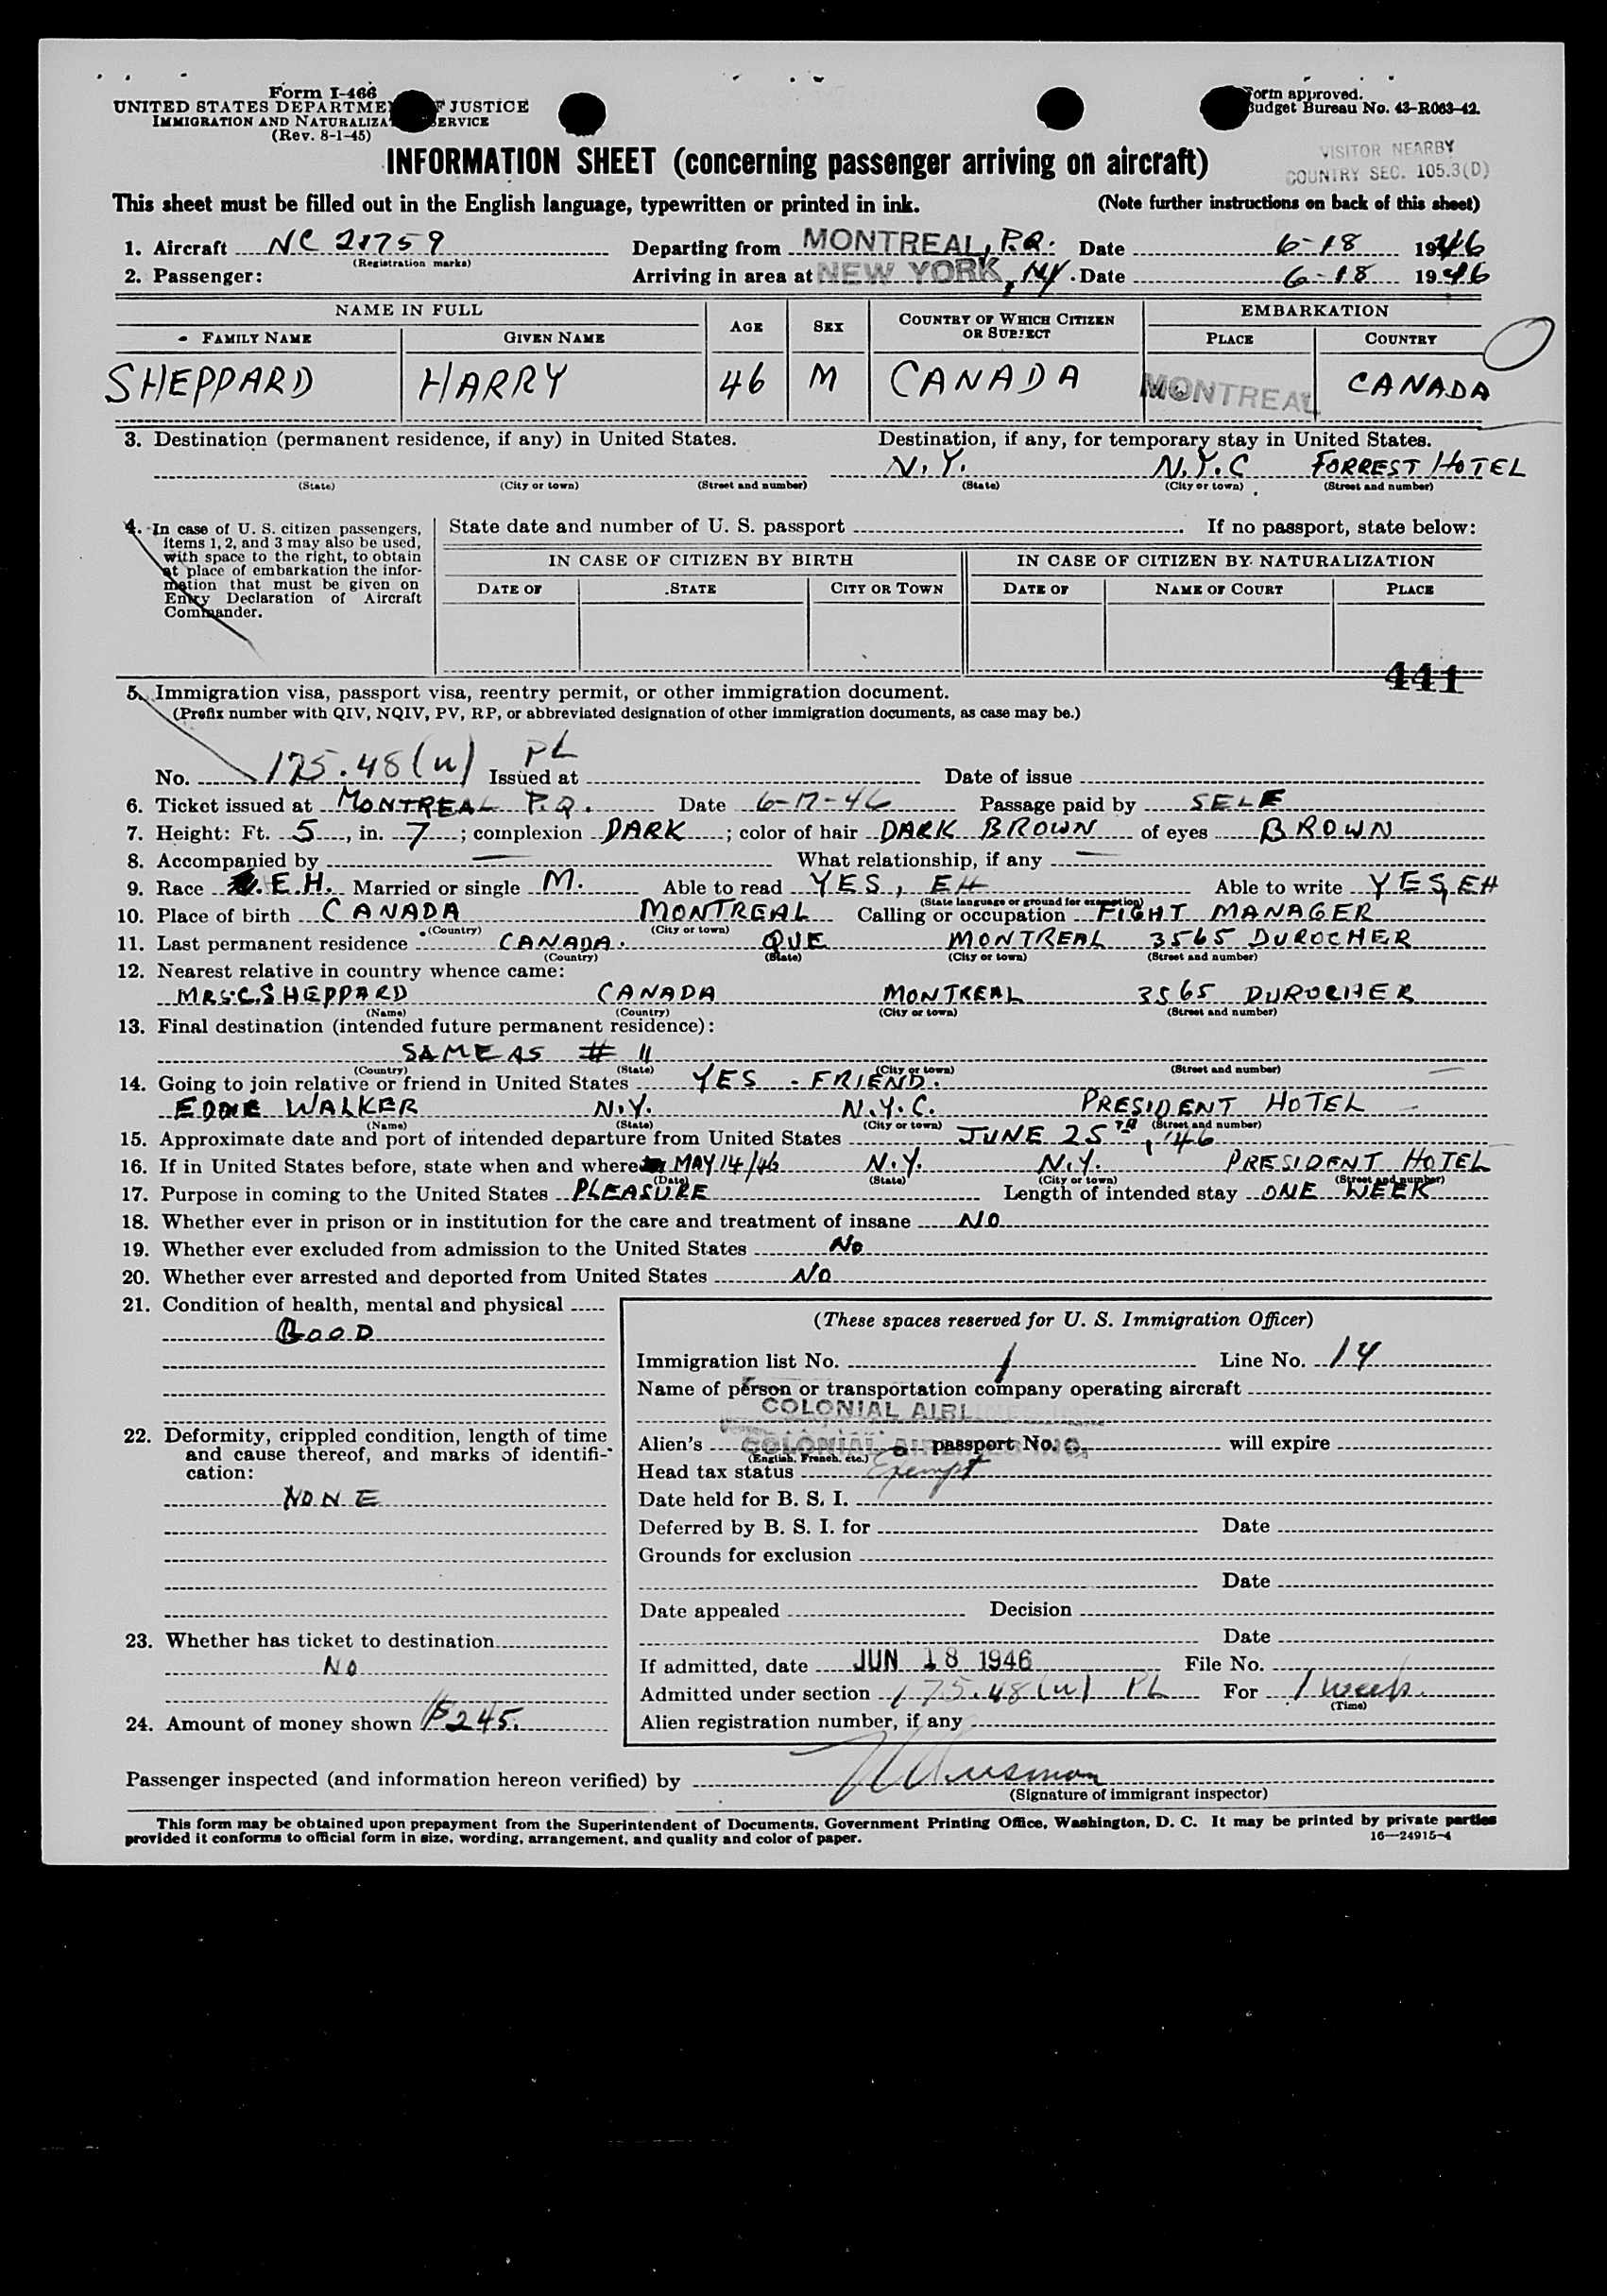 Form I-466
UNITED STATES DEPARTMENT OF JUSTICE
IMMIGRATION AND NATURALIZATION SERVICE
(Rev. 8-1-45)
Form approved.
Budget Bureau No. 43-R063-42.
INFORMATION SHEET (concerning passenger arriving on aircraft)
VISITOR NEARBY
COUNTRY SEC. 105.3(D)
This sheet must be filled out in the English language, typewritten or printed in ink. (Note further instructions on back of this sheet)
1. Aircraft NC 21759 Departing from MONTREAL, P.Q. Date 6-18 1946
(Registration marks)
2. Passenger: Arriving in area at NEW YORK, NY. Date 6-18 1946
NAME IN FULL AGE SEX COUNTRY OF WHICH CITIZEN OR SUBJECT EMBARKATION
FAMILY NAME GIVEN NAME PLACE COUNTRY
SHEPPARD HARRY 46 M CANADA MONTREAL CANADA
3. Destination (permanent residence, if any) in United States. Destination, if any, for temporary stay in United States.
N.Y. N.Y.C FORREST HOTEL
(State) (City or town) (Street and number) (State) (City or town) (Street and number)
4. In case of U. S. citizen passengers, items 1, 2, and 3 may also be used, with space to the right, to obtain at place of embarkation the information that must be given on Entry Declaration of Aircraft Commander.
State date and number of U. S. passport If no passport, state below:
IN CASE OF CITIZEN BY BIRTH IN CASE OF CITIZEN BY NATURALIZATION
DATE OF STATE CITY OR TOWN DATE OF NAME OF COURT PLACE
441
5. Immigration visa, passport visa, reentry permit, or other immigration document.
(Prefix number with QIV, NQIV, PV, RP, or abbreviated designation of other immigration documents, as case may be.)
No. 175.48(u) PL Issued at Date of issue
6. Ticket issued at MONTREAL P.Q. Date 6-17-46 Passage paid by SELF
7. Height: Ft. 5, in. 7; complexion DARK; color of hair DARK BROWN of eyes BROWN
8. Accompanied by — What relationship, if any —
9. Race E.H. Married or single M. Able to read YES, EH Able to write YES, EH
(State language or ground for exemption)
10. Place of birth CANADA MONTREAL Calling or occupation FIGHT MANAGER
(Country) (City or town)
11. Last permanent residence CANADA. QUE MONTREAL 3565 DUROCHER
(Country) (State) (City or town) (Street and number)
12. Nearest relative in country whence came:
MRS. C. SHEPPARD CANADA MONTREAL 3565 DUROCHER
(Name) (Country) (City or town) (Street and number)
13. Final destination (intended future permanent residence):
SAME AS # 11
(Country) (State) (City or town) (Street and number)
14. Going to join relative or friend in United States YES - FRIEND.
EDDIE WALKER N.Y. N.Y.C. PRESIDENT HOTEL
(Name) (State) (City or town) (Street and number)
15. Approximate date and port of intended departure from United States JUNE 25TH, '46
16. If in United States before, state when and where MAY 14/46 N.Y. N.Y. PRESIDENT HOTEL
(Date) (State) (City or town) (Street and number)
17. Purpose in coming to the United States PLEASURE Length of intended stay ONE WEEK
18. Whether ever in prison or in institution for the care and treatment of insane NO
19. Whether ever excluded from admission to the United States No
20. Whether ever arrested and deported from United States NO
21. Condition of health, mental and physical
GOOD
22. Deformity, crippled condition, length of time and cause thereof, and marks of identification:
NONE
23. Whether has ticket to destination
NO
24. Amount of money shown $245.
(These spaces reserved for U. S. Immigration Officer)
Immigration list No. 1 Line No. 14
Name of person or transportation company operating aircraft
COLONIAL AIRLINES INC.
Alien's COLONIAL AIRLINES INC. passport No. will expire
(English, French, etc.)
Head tax status Exempt
Date held for B. S. I.
Deferred by B. S. I. for Date
Grounds for exclusion
Date
Date appealed Decision
Date
If admitted, date JUN 18 1946 File No.
Admitted under section 175.48(u) PL For 1 week.
(Time)
Alien registration number, if any
Passenger inspected (and information hereon verified) by
(Signature of immigrant inspector)
This form may be obtained upon prepayment from the Superintendent of Documents, Government Printing Office, Washington, D. C. It may be printed by private parties
provided it conforms to official form in size, wording, arrangement, and quality and color of paper. 16—24915-4